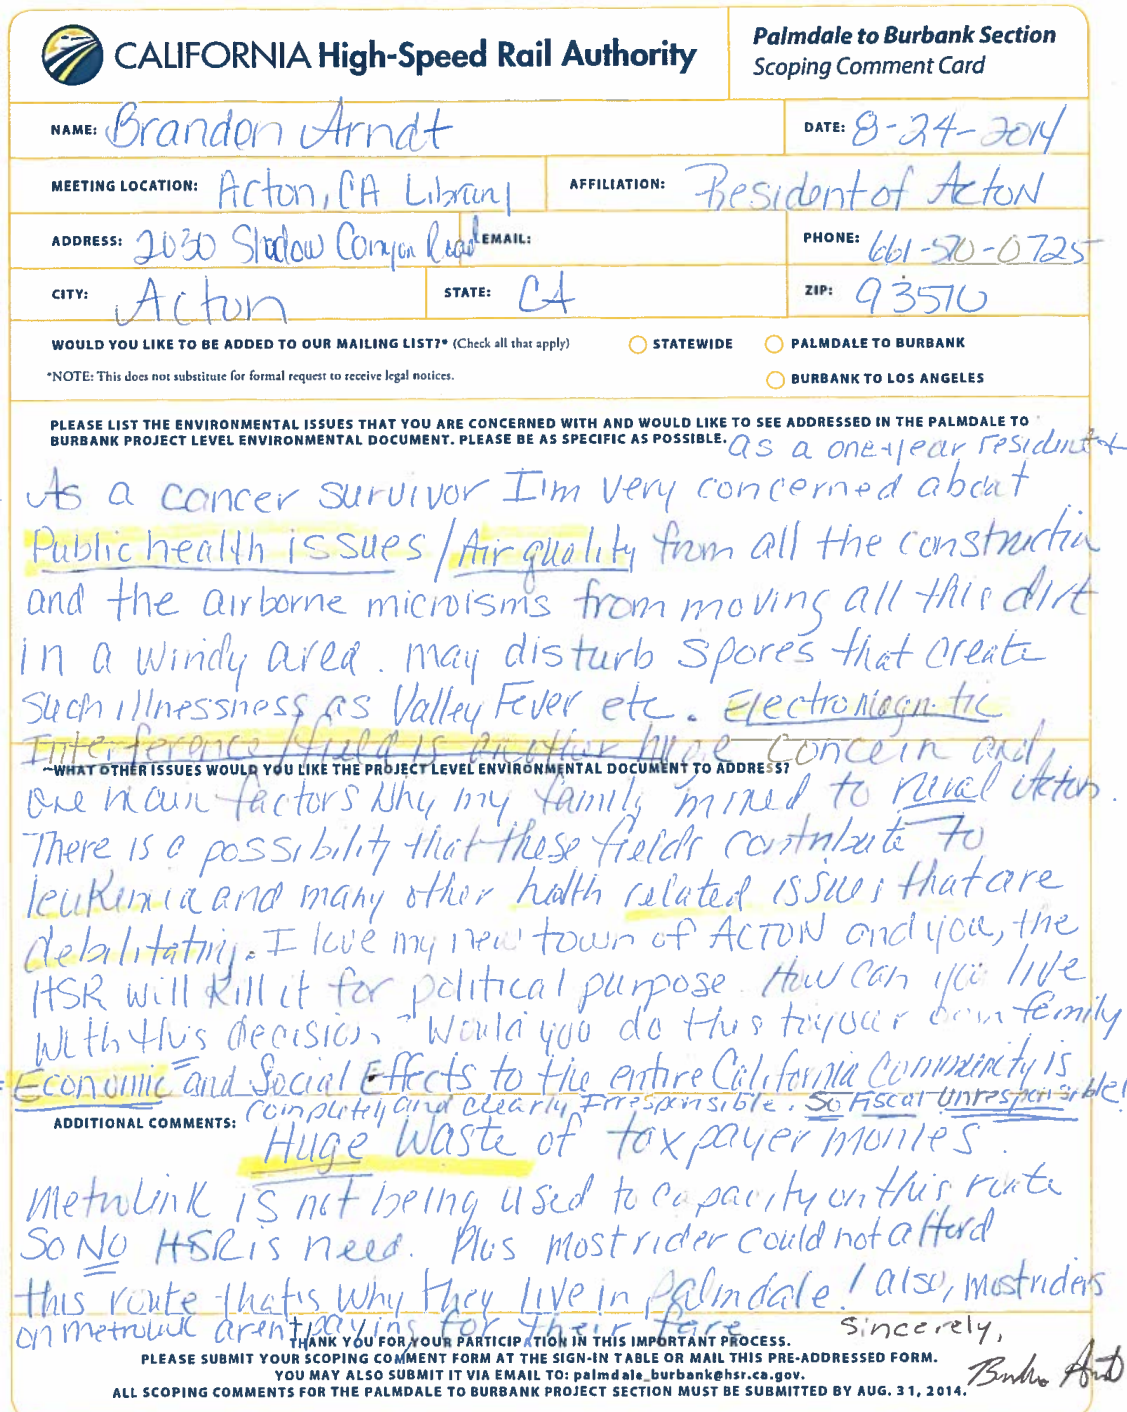 CALIFORNIA High-Speed Rail Authority
Palmdale to Burbank Section
Scoping Comment Card
NAME: Brandon Arndt
DATE: 8-24-2014
MEETING LOCATION: Acton, CA Library
AFFILIATION: Resident of Acton
ADDRESS: 2030 Shadow Canyon Road
EMAIL:
PHONE: 661-570-0725
CITY: Acton
STATE: CA
ZIP: 93510
WOULD YOU LIKE TO BE ADDED TO OUR MAILING LIST?* (Check all that apply)
STATEWIDE
PALMDALE TO BURBANK
*NOTE: This does not substitute for formal request to receive legal notices.
BURBANK TO LOS ANGELES
PLEASE LIST THE ENVIRONMENTAL ISSUES THAT YOU ARE CONCERNED WITH AND WOULD LIKE TO SEE ADDRESSED IN THE PALMDALE TO
BURBANK PROJECT LEVEL ENVIRONMENTAL DOCUMENT. PLEASE BE AS SPECIFIC AS POSSIBLE.
as a one-year resident +
As a cancer survivor I'm very concerned about
Public health issues / Air quality from all the construction
and the airborne microisms from moving all this dirt
in a windy area. may disturb spores that create
such illnessness as Valley Fever etc. Electromagnetic
Interference/field is another huge concern and
~WHAT OTHER ISSUES WOULD YOU LIKE THE PROJECT LEVEL ENVIRONMENTAL DOCUMENT TO ADDRESS?
one main factors why my family moved to rural Acton.
There is a possibility that these fields contribute to
leukemia and many other health related issues that are
debilitating. I love my new town of ACTON and you, the
HSR will kill it for political purpose. How can you live
with this decision? Would you do this to your own family
Economic and Social Effects to the entire California Community is
completely and clearly Irresponsible. So Fiscal Unresponsible!
ADDITIONAL COMMENTS:
Huge Waste of tax payer monies.
Metrolink is not being used to capacity on this route
So No HSR is need. Plus most rider could not afford
this route that's why they live in Palmdale! also, most riders
on metrolink aren't paying for their fare
Sincerely,
THANK YOU FOR YOUR PARTICIPATION IN THIS IMPORTANT PROCESS.
PLEASE SUBMIT YOUR SCOPING COMMENT FORM AT THE SIGN-IN TABLE OR MAIL THIS PRE-ADDRESSED FORM.
YOU MAY ALSO SUBMIT IT VIA EMAIL TO: palmdale_burbank@hsr.ca.gov.
ALL SCOPING COMMENTS FOR THE PALMDALE TO BURBANK PROJECT SECTION MUST BE SUBMITTED BY AUG. 31, 2014.